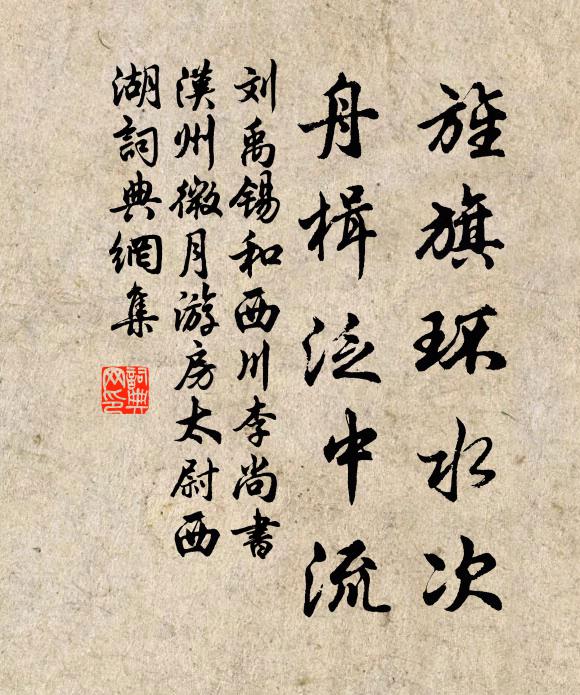 旌旗环水次
舟楫泛中流
刘禹锡和西川李尚书
漢州微月游房太尉西
湖詞典網集
詞典网印